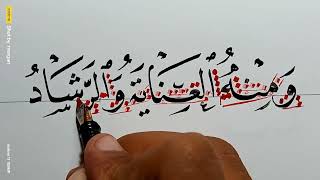 وَمِنْهُ الْعِنَايَةُ وَالرَّشَادُ